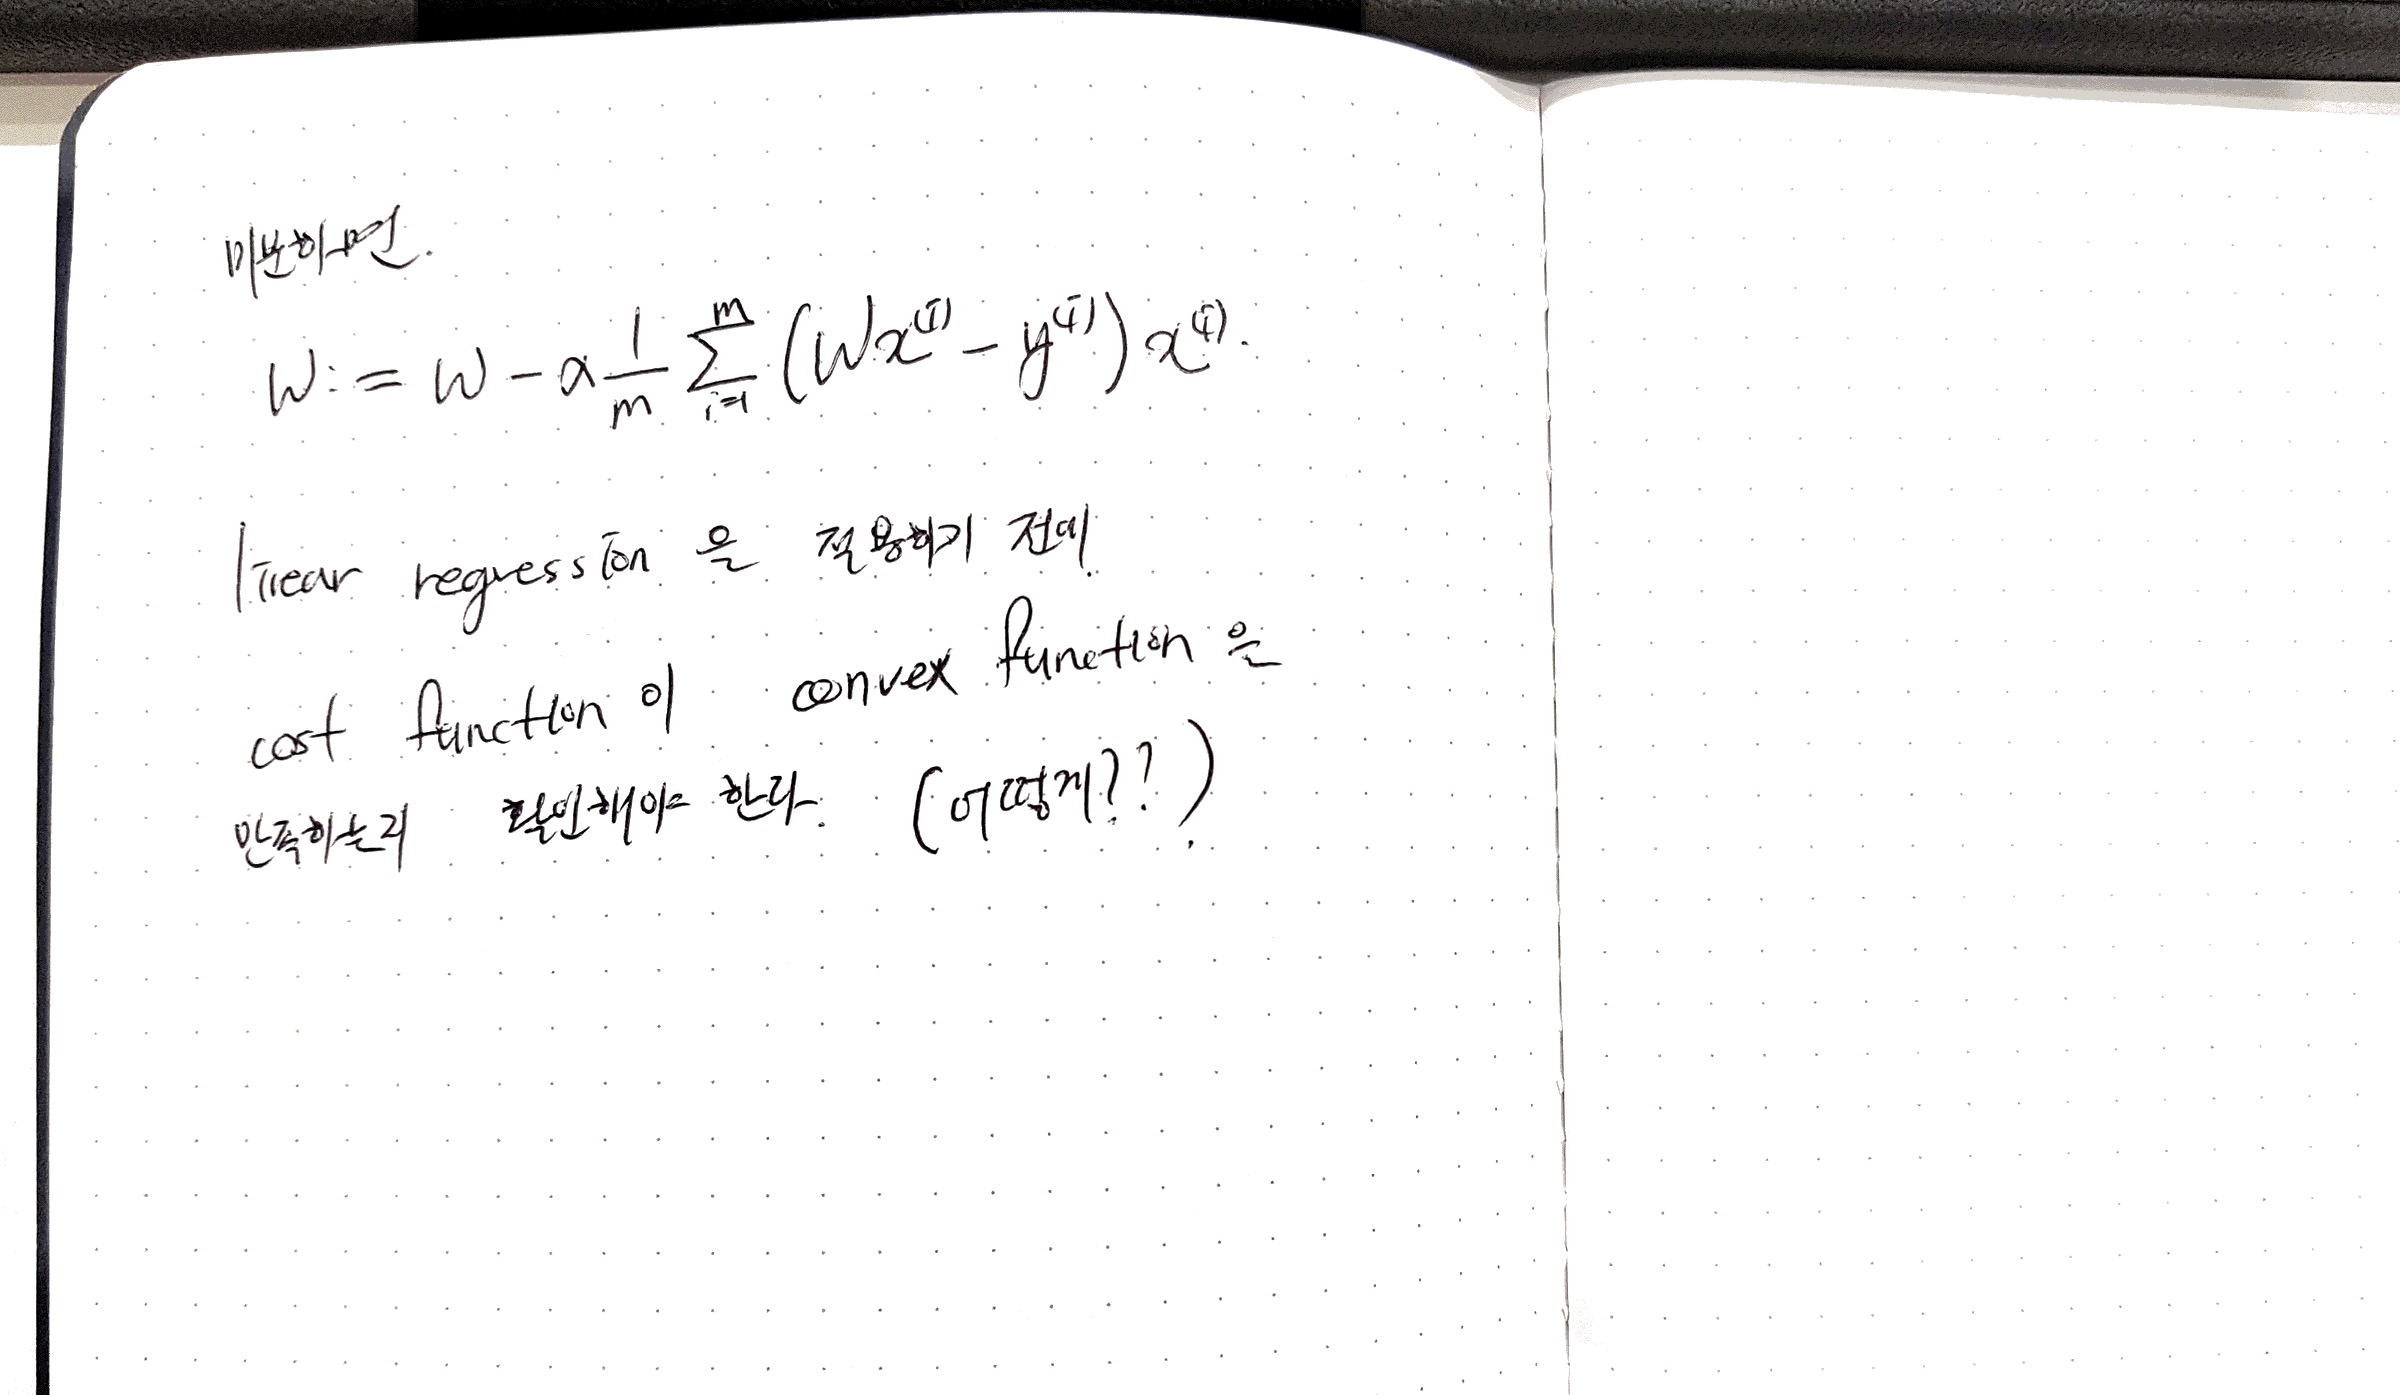 미분하면.
W := W - α 1/m Σ_{i=1}^{m} (Wx^{(i)} - y^{(i)}) x^{(i)}.
linear regression 을 적용하기 전에
cost function 이 convex function 을
만족하는지 확인해야 한다. (어떻게??)